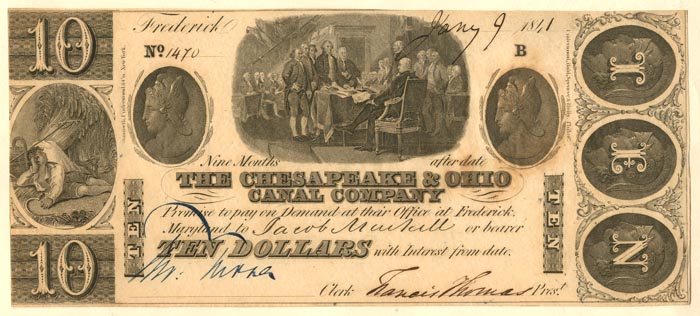 10
Frederick Jany 9 1841
No. 1470 B
Nine Months after date
THE CHESAPEAKE & OHIO
CANAL COMPANY
Promise to pay on Demand at their Office at Frederick.
Maryland to Jacob Markell or bearer
TEN DOLLARS with Interest from date.
Clerk Francis Thomas Prest.
10
TEN
TEN
T
E
N